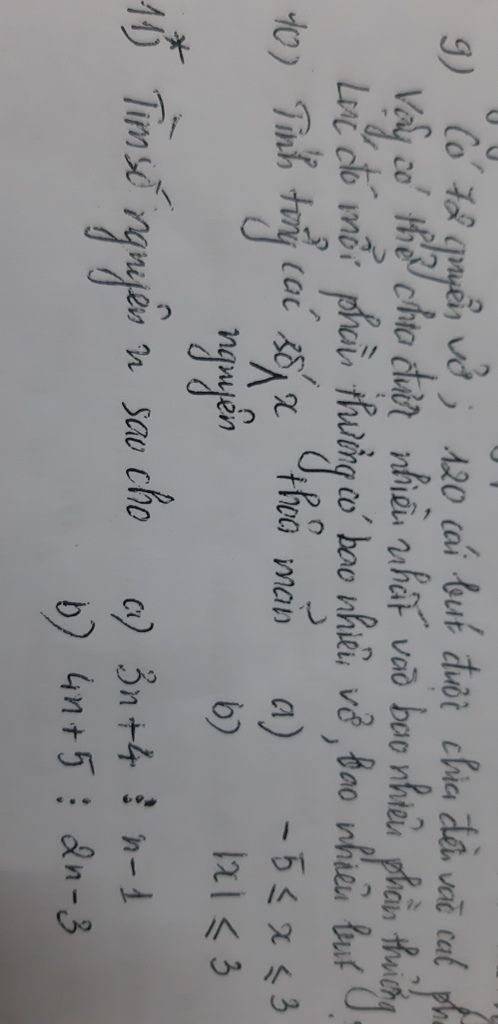 9) Có 72 quyển vở; 120 cái bút được chia đều vào các ph
Vậy có thể chia được nhiều nhất vào bao nhiêu phần thưởng
Lúc đó mỗi phần thưởng có bao nhiêu vở, bao nhiêu bút?
10) Tính tổng các số nguyên x thỏa mãn a) -5 ≤ x ≤ 3
b) |x| ≤ 3
11)* Tìm số nguyên n sao cho a) 3n+4 ⋮ n-1
b) 4n+5 ⋮ 2n-3